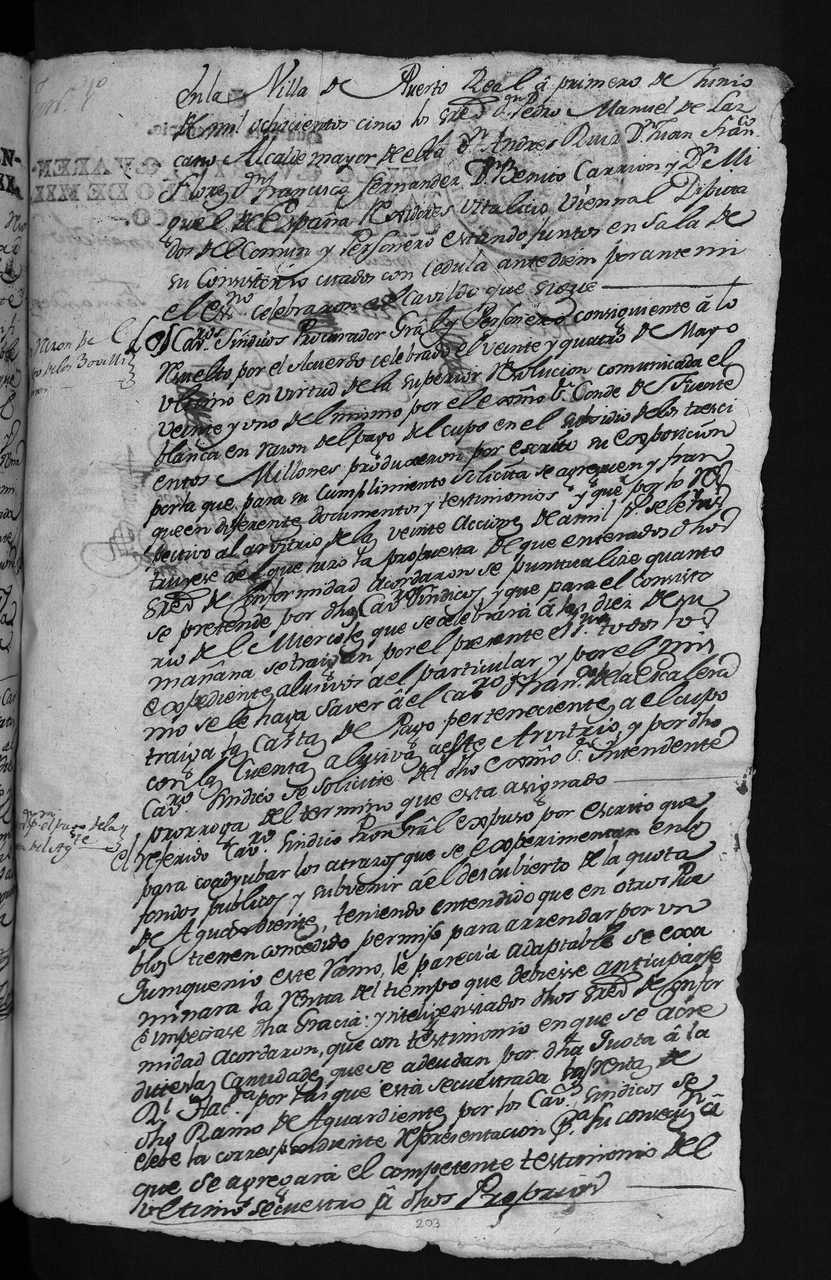 En la Villa de Puerto Real â primero de Junio
de mil ochocientos cinco los Sres. Dn. Pedro Manuel de Laz
cano Alcalde mayor de ella Dn. Andres Ruiz Dn. Juan Franco.
Flores Dn. Francisco Fernandez, Dn. Benito Carrion y Dn. Mi
guel de España Rexidores Vitalicio, Viennal Diputa
dos del Comun y Personero estando juntos en Sala de
su Consistorio citados con cedula antediem por ante mi
el esno. celebraron el Cavildo que sigue
Los Cavros. Sindicos Procurador Gral y Personero consiguiente â lo
resuelto por el Acuerdo celebrado el veinte y quatro de Mayo
ultimo en virtud de la superior resolucion comunicada el
veinte y uno del mismo por el excmo. Sr. Conde de Fuente
blanca en razon del pago del cupo en el subsidio de los tresci
entos Millones produxeron por escrito su exposicion
por la que para su cumplimiento solicita se agreguen y fran
queen diferentes documentos y testimonios y que por lo res
pectivo al arvitrio de las veinte Acciones de a mil ps. se le ins
truyese del que hizo la propuesta de que enterados dhos
Sres. de conformidad acordaron se puntualize quanto
se pretende por dhos Cavros. Sindicos y que para el consisto
rio del Miercoles que se celebrará â las diez de su
mañana se traigan por el presente esno. todos los
expedientes alusivos a el particular, y por el mis
mo se le haga saver â el Cavro. Dn. Franco. de la Escalera
traiga las Cartas de Pago perteneciente a el cupo
con la Cuenta alusiva a este Arvitrio, y por dho
Cavro. Sindico se solicite del dho excmo. Sr. Intendente
prorroga del termino que está asignado
el referido Cavro. Sindico Pror. Gral expuso por escrito que
para coadyubar los atrazos que se experimentan en los
fondos publicos y subvenir â el descubierto de la quota
de Aguardiente, teniendo entendido que en otros Pue
blos tienen concedido permiso para arrendar por un
quinquenio este ramo, le parecia adaptable se exa
minara la renta del tiempo que debiesse anticiparse
é impetrase dha Gracia: y inteligensiados dhos Sres. de confor
midad acordaron, que con testimonio en que se acre
diten las Cantidades que se adeudan por dha Quota â la
Rl. Hacda. por las que está secuestrada la renta de
dho Ramo de Aguardiente por los Cavros. Sindicos se
eleve la correspondiente representacion pa. su consecucn. â
que se agregará el competente testimonio del
ultimo secuestro â dhos Propios
203